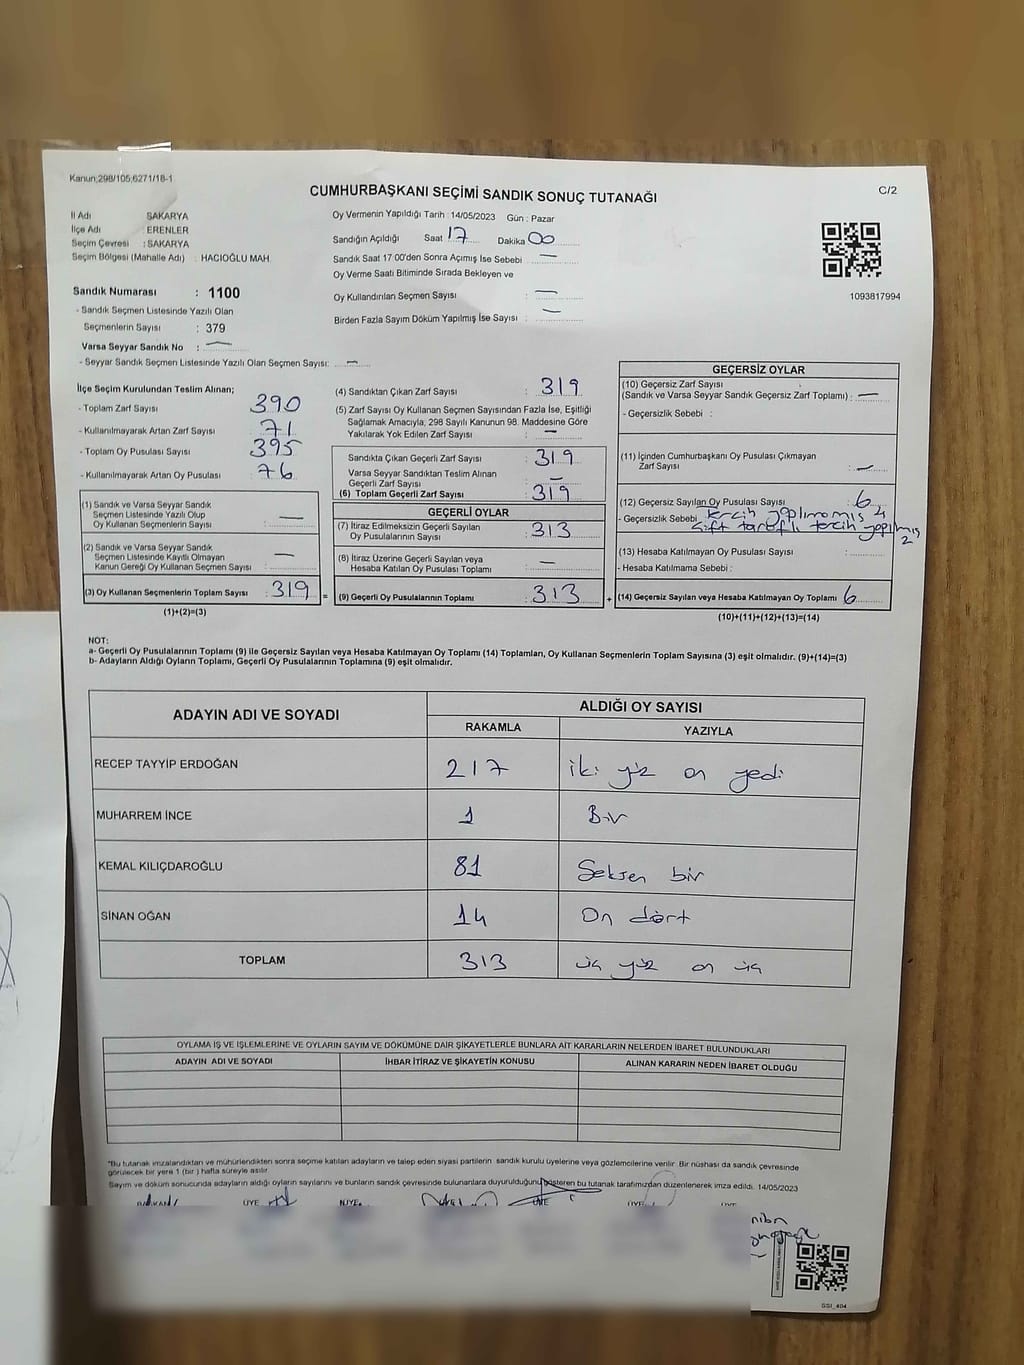 Kanun;298/105,6271/18-1
CUMHURBAŞKANI SEÇİMİ SANDIK SONUÇ TUTANAĞI
C/2
İl Adı SAKARYA
İlçe Adı : ERENLER
Seçim Çevresi : SAKARYA
Seçim Bölgesi (Mahalle Adı) : HACIOĞLU MAH.
Oy Vermenin Yapıldığı Tarih : 14/05/2023 Gün : Pazar
Sandığın Açıldığı Saat 17 Dakika 00
Sandık Saat 17:00'den Sonra Açımış İse Sebebi : —
Oy Verme Saati Bitiminde Sırada Bekleyen ve
Oy Kullandırılan Seçmen Sayısı : —
Birden Fazla Sayım Döküm Yapılmış İse Sayısı : —
1093817994
Sandık Numarası : 1100
- Sandık Seçmen Listesinde Yazılı Olan
Seçmenlerin Sayısı : 379
Varsa Seyyar Sandık No : —
- Seyyar Sandık Seçmen Listesinde Yazılı Olan Seçmen Sayısı: —
İlçe Seçim Kurulundan Teslim Alınan;
- Toplam Zarf Sayısı 390
- Kullanılmayarak Artan Zarf Sayısı 71
- Toplam Oy Pusulası Sayısı 395
- Kullanılmayarak Artan Oy Pusulası : 76
(1) Sandık ve Varsa Seyyar Sandık
Seçmen Listesinde Yazılı Olup
Oy Kullanan Seçmenlerin Sayısı : —
(2) Sandık ve Varsa Seyyar Sandık
Seçmen Listesinde Kayıtlı Olmayan
Kanun Gereği Oy Kullanan Seçmen Sayısı : —
(3) Oy Kullanan Seçmenlerin Toplam Sayısı : 319 =
(1)+(2)=(3)
(4) Sandıktan Çıkan Zarf Sayısı : 319
(5) Zarf Sayısı Oy Kullanan Seçmen Sayısından Fazla İse, Eşitliği
Sağlamak Amacıyla, 298 Sayılı Kanunun 98. Maddesine Göre
Yakılarak Yok Edilen Zarf Sayısı : —
Sandıkta Çıkan Geçerli Zarf Sayısı : 319
Varsa Seyyar Sandıktan Teslim Alınan
Geçerli Zarf Sayısı : —
(6) Toplam Geçerli Zarf Sayısı : 319
GEÇERLİ OYLAR
(7) İtiraz Edilmeksizin Geçerli Sayılan
Oy Pusulalarının Sayısı : 313
(8) İtiraz Üzerine Geçerli Sayılan veya
Hesaba Katılan Oy Pusulası Toplamı : —
(9) Geçerli Oy Pusulalarının Toplamı : 313 +
GEÇERSİZ OYLAR
(10) Geçersiz Zarf Sayısı
(Sandık ve Varsa Seyyar Sandık Geçersiz Zarf Toplamı) : —
- Geçersizlik Sebebi :
(11) İçinden Cumhurbaşkanı Oy Pusulası Çıkmayan
Zarf Sayısı : —
(12) Geçersiz Sayılan Oy Pusulası Sayısı : 6
- Geçersizlik Sebebi Tercih yapılmamış 4
Çift taraflı tercih yapılmış 2
(13) Hesaba Katılmayan Oy Pusulası Sayısı :
- Hesaba Katılmama Sebebi :
(14) Geçersiz Sayılan veya Hesaba Katılmayan Oy Toplamı 6
(10)+(11)+(12)+(13)=(14)
NOT:
a- Geçerli Oy Pusulalarının Toplamı (9) ile Geçersiz Sayılan veya Hesaba Katılmayan Oy Toplamı (14) Toplamları, Oy Kullanan Seçmenlerin Toplam Sayısına (3) eşit olmalıdır. (9)+(14)=(3)
b- Adayların Aldığı Oyların Toplamı, Geçerli Oy Pusulalarının Toplamına (9) eşit olmalıdır.
ADAYIN ADI VE SOYADI
ALDIĞI OY SAYISI
RAKAMLA YAZIYLA
RECEP TAYYİP ERDOĞAN 217 iki yüz on yedi
MUHARREM İNCE 1 Bir
KEMAL KILIÇDAROĞLU 81 Seksen bir
SİNAN OĞAN 14 On dört
TOPLAM 313 üç yüz on üç
OYLAMA İŞ VE İŞLEMLERİNE VE OYLARIN SAYIM VE DÖKÜMÜNE DAİR ŞİKAYETLERLE BUNLARA AİT KARARLARIN NELERDEN İBARET BULUNDUKLARI
ADAYIN ADI VE SOYADI İHBAR İTİRAZ VE ŞİKAYETİN KONUSU ALINAN KARARIN NEDEN İBARET OLDUĞU
"Bu tutanak imzalandıktan ve mühürlendikten sonra seçime katılan adayların ve talep eden siyasi partilerin sandık kurulu üyelerine veya gözlemcilerine verilir. Bir nüshası da sandık çevresinde
görülecek bir yere 1 (bir ) hafta süreyle asılır.
Sayım ve döküm sonucunda adayların aldığı oyların sayılarını ve bunların sandık çevresinde bulunanlara duyurulduğunu gösteren bu tutanak tarafımızdan düzenlenerek imza edildi. 14/05/2023
BAŞKAN ÜYE ÜYE ÜYE ÜYE
GSI_404